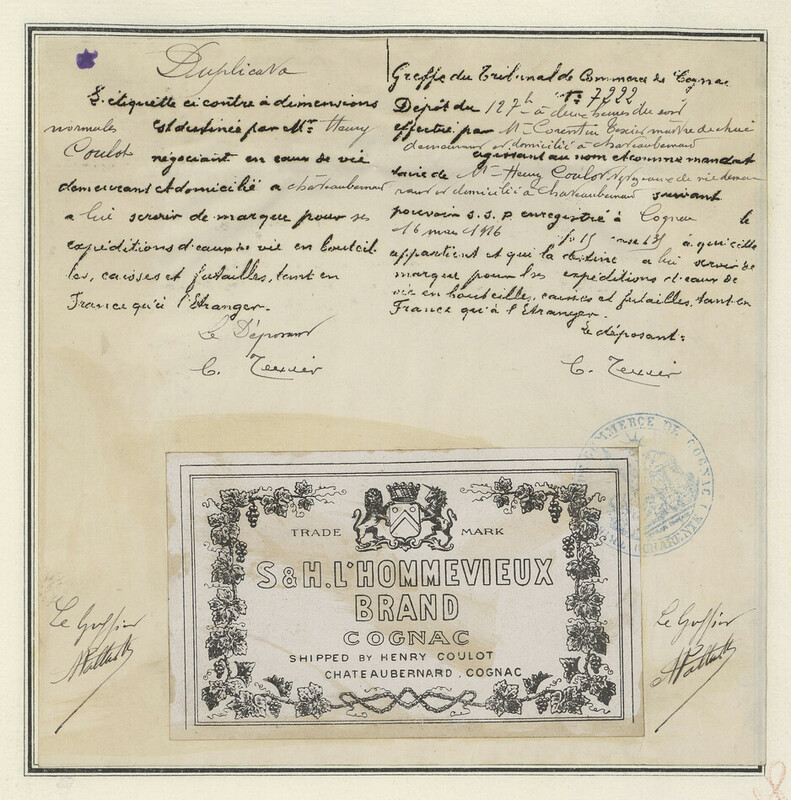 Duplicata
L'étiquette ci contre à dimensions
normales est destinée par Mr Henry
Coulot négociant en eaux de vie
demeurant et domicilié à châteaubernard
a lui servir de marque pour ses
expéditions d'eaux de vie en bouteil
les, caisses et futailles, tant en
France qu'à l'Etranger.
Le Déposant
C. Texier
Greffe du Tribunal de Commerce de Cognac
No 7222
Dépôt du à deux heures du soir
effectué par Mr Corentin Texier maître de chai
demeurant et domicilié à chateaubernard
agissant au nom et comme mandat
taire de Mr Henry Coulot négt en eaux de vie demeu
rant et domicilié à Chateaubernard suivant
pouvoir s.s.p. enregistré à Cognac le
16 mai fo 15 case 131 à qui elle
appartient et qui la destine a lui servir de
marque pour ses expéditions d'eaux de
vie en bouteilles, caisses et futailles, tant en
France qu'à l'Etranger.
Le déposant:
C. Texier
COMMERCE DE COGNAC
TRADE MARK
S & H. L'HOMMEVIEUX
BRAND
COGNAC
SHIPPED BY HENRY COULOT
CHATEAUBERNARD . COGNAC
Le Greffier
Le Greffier